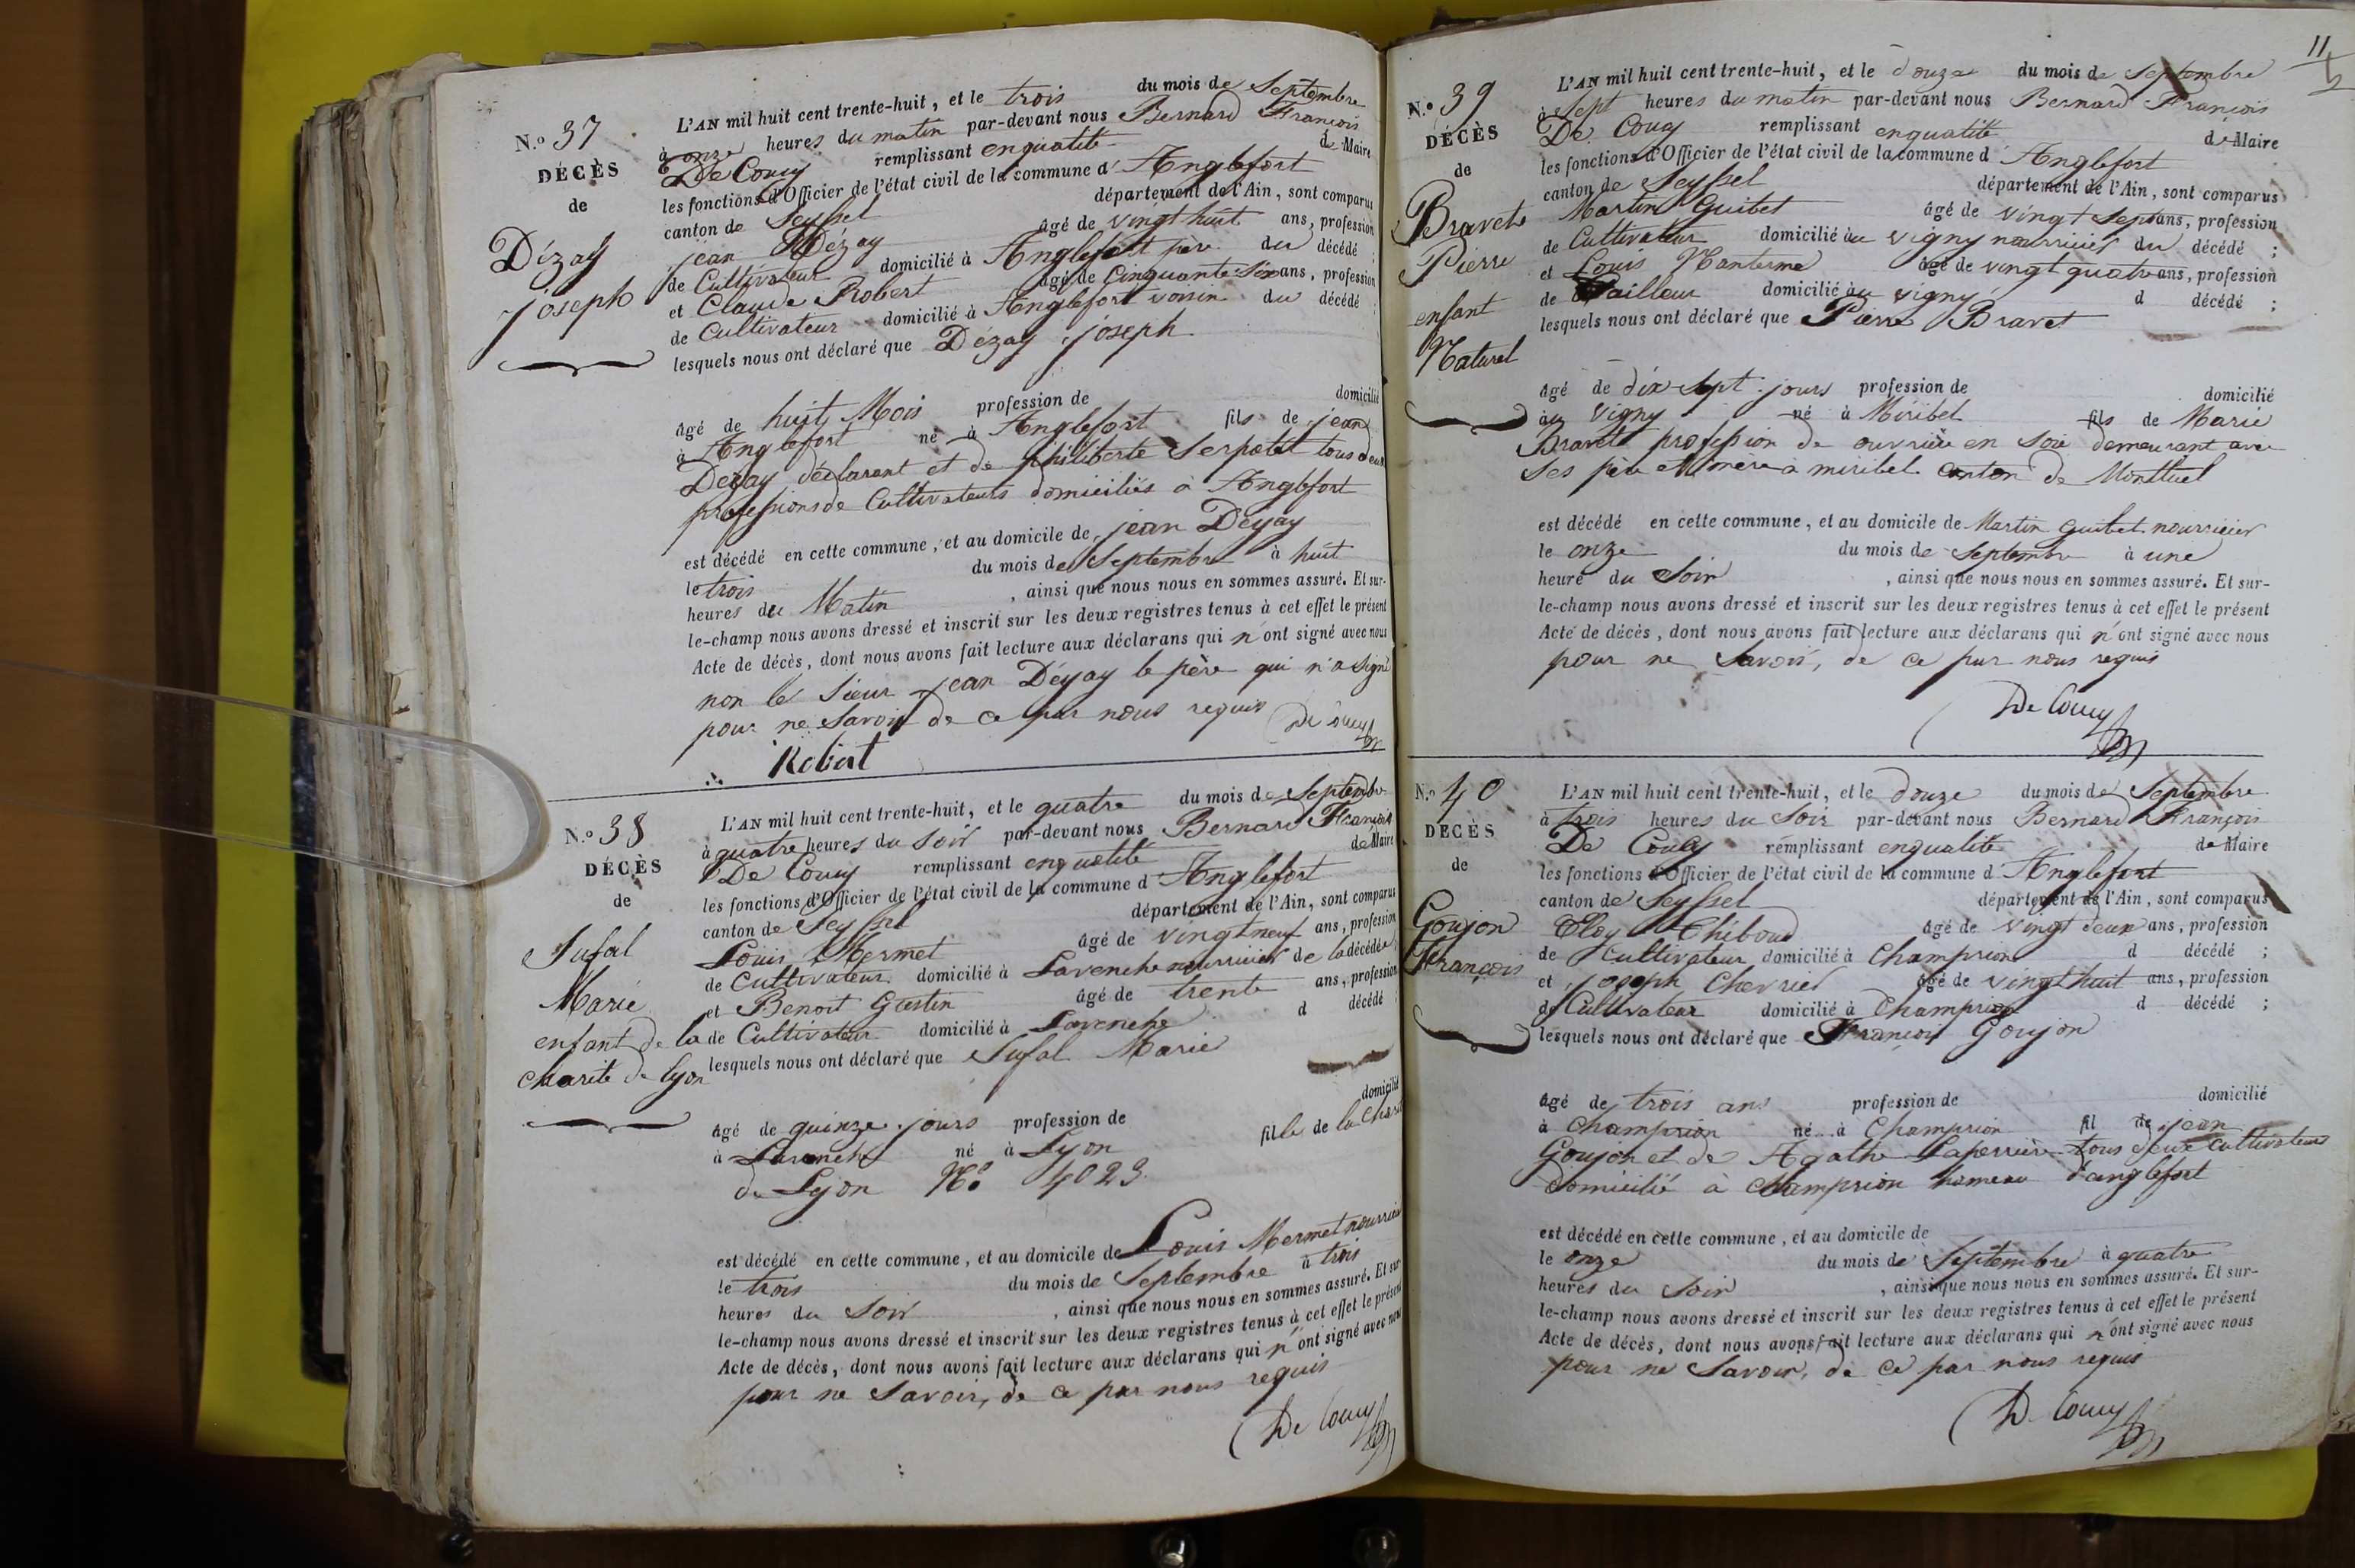 N.o 37
DÉCÈS
de
Dézay
joseph
L'AN mil huit cent trente-huit, et le trois du mois de Septembre
à onze heures du matin par-devant nous Bernard François
De Coucy remplissant en qualité de Maire
les fonctions d'Officier de l'état civil de la commune d'Anglefort
canton de Seyssel département de l'Ain, sont comparus
jean Dézay âgé de vingt huit ans, profession
de Cultivateur domicilié à Anglefort père du décédé ;
et Claude Robert âgé de Cinquante Six ans, profession
de Cultivateur domicilié à Anglefort voisin du décédé ;
lesquels nous ont déclaré que Dézay joseph
âgé de huit Mois profession de domicilié
à Anglefort né à Anglefort fils de jean
Dézay déclarant et de philiberte Serpolet tous deux
professions de Cultivateurs domiciliés à Anglefort
est décédé en cette commune, et au domicile de jean Dézay
le trois du mois de Septembre à huit
heures du Matin , ainsi que nous nous en sommes assuré. Et sur-
le-champ nous avons dressé et inscrit sur les deux registres tenus à cet effet le présent
Acte de décès, dont nous avons fait lecture aux déclarans qui n'ont signé avec nous
non le Sieur jean Dézay le père qui n'a signé
pour ne Savoir de ce par nous requis De Coucy
Robert
N.o 38
DÉCÈS
de
Sufal
Marie
enfant de la
charité de lyon
L'AN mil huit cent trente-huit, et le quatre du mois de Septembre
à quatre heures du Soir par-devant nous Bernard François
De Coucy remplissant en qualité de Maire
les fonctions d'Officier de l'état civil de la commune d'Anglefort
canton de Seyssel département de l'Ain, sont comparus
Louis Mermet âgé de vingt neuf ans, profession
de Cultivateur domicilié à Lavenche nourricier de la décédée ;
et Benoit Gustin âgé de trente ans, profession
de Cultivateur domicilié à Lavenche d décédé ;
lesquels nous ont déclaré que Sufal Marie
âgé de quinze jours profession de domicilié
à Lavenche né à Lyon fille de la Charité
de Lyon N.o 4023
est décédé en cette commune, et au domicile de Louis Mermet nourricier
le trois du mois de Septembre à trois
heures du Soir , ainsi que nous nous en sommes assuré. Et sur-
le-champ nous avons dressé et inscrit sur les deux registres tenus à cet effet le présent
Acte de décès, dont nous avons fait lecture aux déclarans qui n'ont signé avec nous
pour ne Savoir, de ce par nous requis
De Coucy
11
N.o 39
DÉCÈS
de
Bravet
Pierre
enfant
Naturel
L'AN mil huit cent trente-huit, et le douze du mois de Septembre
à Sept heures du matin par-devant nous Bernard François
De Coucy remplissant en qualité de Maire
les fonctions d'Officier de l'état civil de la commune d'Anglefort
canton de Seyssel département de l'Ain, sont comparus
Martin Guibet âgé de vingt Sept ans, profession
de Cultivateur domicilié au vigny nourricier du décédé ;
et Louis Nanterme âgé de vingt quatre ans, profession
de Tailleur domicilié au vigny d décédé ;
lesquels nous ont déclaré que Pierre Bravet
âgé de dix Sept jours profession de domicilié
au vigny né à Miribel fils de Marie
Bravet profession de ouvrière en Soie demeurant avec
Ses père et mère a miribel canton de Montluel
est décédé en cette commune, et au domicile de Martin Guibet nourricier
le onze du mois de Septembre à une
heure du Soir , ainsi que nous nous en sommes assuré. Et sur-
le-champ nous avons dressé et inscrit sur les deux registres tenus à cet effet le présent
Acte de décès, dont nous avons fait lecture aux déclarans qui n'ont signé avec nous
pour ne Savoir, de ce par nous requis
De Coucy
N.o 40
DÉCÈS
de
Goujon
François
L'AN mil huit cent trente-huit, et le douze du mois de Septembre
à trois heures du Soir par-devant nous Bernard François
De Coucy remplissant en qualité de Maire
les fonctions d'Officier de l'état civil de la commune d Anglefort
canton de Seyssel département de l'Ain, sont comparus
Eloy Thiboud âgé de vingt deux ans, profession
de Cultivateur domicilié à Champrion d décédé ;
et joseph Chevrier âgé de vingt huit ans, profession
de Cultivateur domicilié à Champrion d décédé ;
lesquels nous ont déclaré que François Goujon
âgé de trois ans profession de domicilié
à Champrion né à Champrion fil de jean
Goujon et de Agathe Laperrière tous deux Cultivateurs
domicilié à Champrion hameau d'anglefort
est décédé en cette commune, et au domicile de
le onze du mois de Septembre à quatre
heures du Soir , ainsi que nous nous en sommes assuré. Et sur-
le-champ nous avons dressé et inscrit sur les deux registres tenus à cet effet le présent
Acte de décès, dont nous avons fait lecture aux déclarans qui n'ont signé avec nous
pour ne Savoir, de ce par nous requis
De Coucy